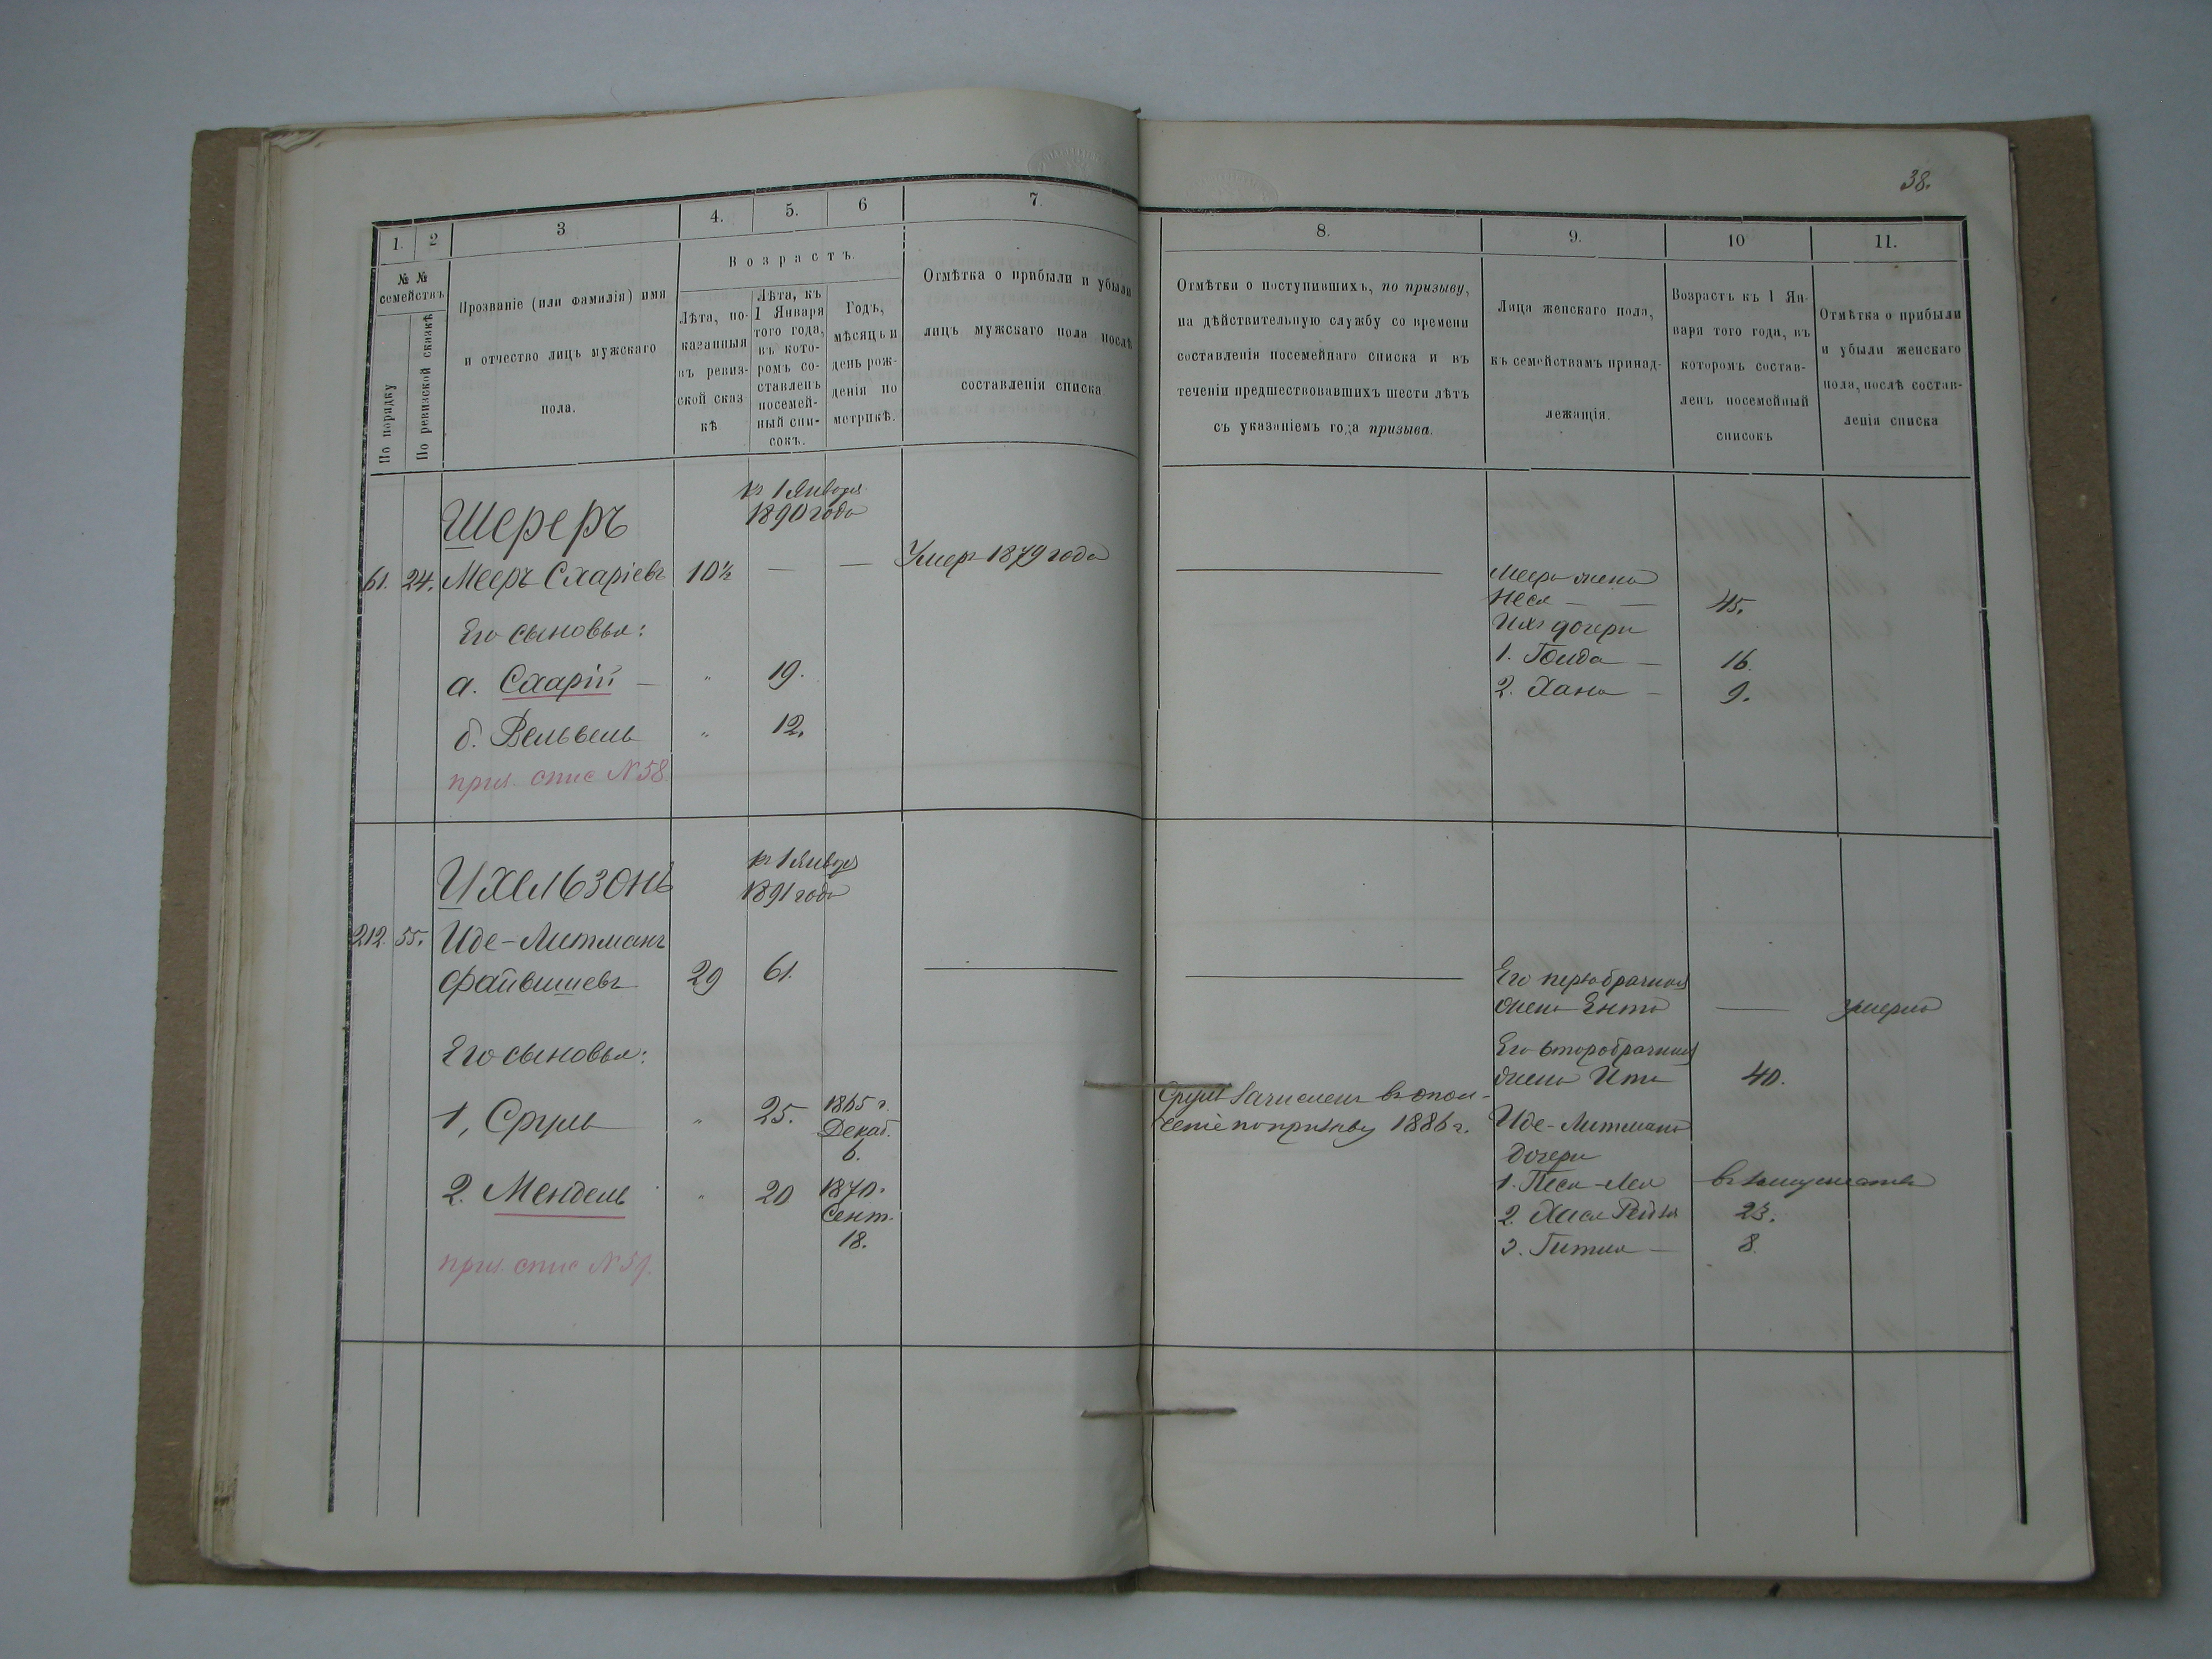 38.
1.
2
3
4.
5.
6
7.
№ №
семействъ
По порядку
По ревизской сказкѣ
Прозваніе (или фамилія) имя
и отчество лицъ мужскаго
пола.
Возрастъ.
Лѣта, по-
казанныя
въ ревиз-
ской сказ
кѣ
Лѣта, къ
1 Января
того года,
въ кото-
ромъ со-
ставленъ
посемей-
ный спи-
сокъ.
Годъ,
мѣсяцъ и
день рож-
денія по
метрикѣ.
Отмѣтка о прибыли и убыли
лицъ мужскаго пола послѣ
составленія списка.
8.
9.
10
11.
Отмѣтки о поступившихъ, по призыву,
на дѣйствительную службу со времени
составленія посемейнаго списка и въ
теченіи предшествовавшихъ шести лѣтъ
съ указаніемъ года призыва.
Лица женскаго пола,
къ семействамъ принад-
лежащія.
Возрастъ къ 1 Ян-
варя того года, въ
которомъ состав-
ленъ посемейный
списокъ
Отмѣтка о прибыли
и убыли женскаго
пола, послѣ состав-
ленія списка
къ 1 Января
1890 года
Шереръ
61. 24. Мееръ Схаріевъ 10½ — — Умеръ 1879 года
Его сыновья:
а. Схарій — " 19.
б. Вельвель " 12.
приз. спис № 58
Меера жена
Неся — — 45.
Ихъ дочери
1. Голда — 16.
2. Хана — 9.
къ 1 Января
1891 года
Ихельзонъ
212. 55. Иде-Литманъ
Файвишевъ 29 61.
Его сыновья:
1, Сруль " 25. 1865 г.
Декаб.
6.
2. Мендель " 20 1870.
Сент.
18.
приз. спис № 59.
Сруль зачисленъ въ опол-
ченіе по призыву 1886 г.
Его первобрачная
жена Ента — умерла
Его второбрачная
жена Ита 40.
Иде-Литмана
дочери
1. Песя-Лея въ замужествѣ
2. Хася 23.
3. Гитля — 8.